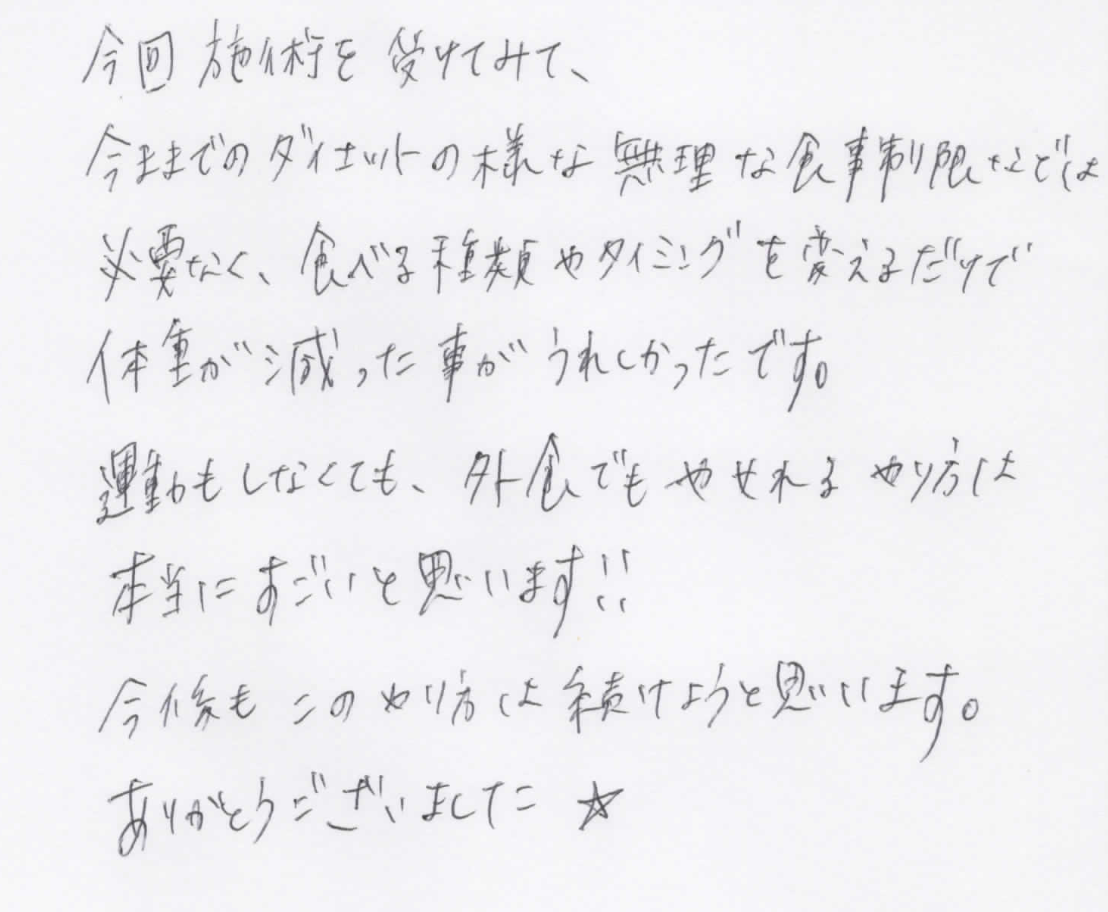 今回 施術を 受けてみて、
今までのダイエットの様な無理な食事制限などは
必要なく、食べる種類やタイミングを変えるだけで
体重が減った事がうれしかったです。
運動もしなくても、外食でもやせれるやり方は
本当にすごいと思います!!
今後もこのやり方は続けようと思います。
ありがとうございました ☆